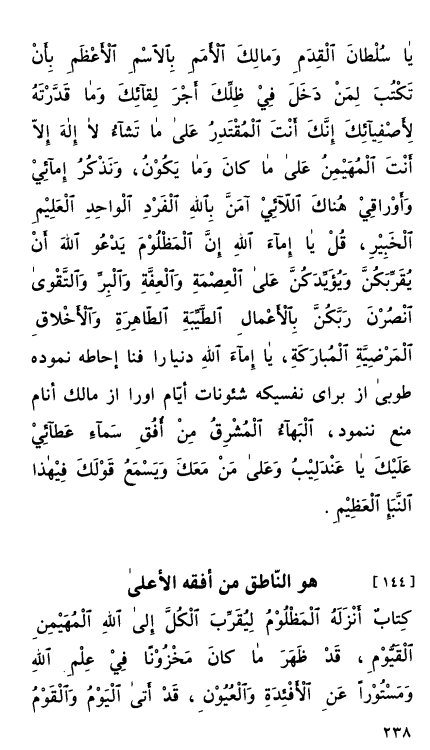 يٰا سُلْطانَ الْقِدَمِ وَمالِكَ الْأُمَمِ بِالاسْمِ الْأَعْظَمِ بِأَنْ
تَكْتُبَ لِمَنْ دَخَلَ فِيْ ظِلِّكَ أَجْرَ لِقآئِكَ وَمٰا قَدَّرْتَهُ
لِأَصْفِيآئِكَ إِنَّكَ أَنْتَ الْمُقْتَدِرُ عَلىٰ مٰا تَشآءُ لاٰ إِلٰهَ إِلاّ
أَنْتَ الْمُهَيْمِنُ عَلىٰ مٰا كانَ وَمٰا يَكُوْنُ، وَنَذْكُرُ إِمآئِيْ
وَأَوْراقِيْ هُناكَ اللّآئِيْ آمَنَّ بِاللهِ الْفَرْدِ الْواحِدِ الْعَلِيْمِ
الْخَبِيْرِ، قُلْ يٰا إِمآءَ اللهِ إِنَّ الْمَظْلُوْمَ يَدْعُو اللهَ أَنْ
يُقَرِّبَكُنَّ وَيُؤَيِّدَكُنَّ عَلىٰ الْعِصْمَةِ وَالْعِفَّةِ وَالْبِرِّ وَالتَّقْوىٰ
انْصُرْنَ رَبَّكُنَّ بِالْأَعْمالِ الطَّيِّبَةِ الطّاهِرَةِ وَالْأَخْلاقِ
الْمَرْضِيَّةِ الْمُبارَكَةِ، يٰا إِمآءَ اللهِ دنيا را فنا إحاطه نموده
طوبىٰ از براى نفسيكه شئونات أيّام اورا از مالك أنام
منع ننمود، الْبَهآءُ الْمُشْرِقُ مِنْ أُفُقِ سَمآءِ عَطآئِيْ
عَلَيْكَ يٰا عَنْدَلِيْبُ وَعَلىٰ مَنْ مَعَكَ وَيَسْمَعُ قَوْلَكَ فِيْهٰذا
النَّبَإِ الْعَظِيْمِ.
[١٤٤] هو النّاطق من أفقه الأعلىٰ
كِتابٌ أَنْزَلَهُ الْمَظْلُوْمُ لِيُقَرِّبَ الْكُلَّ إِلىٰ اللهِ الْمُهَيْمِنِ
الْقَيُّوْمِ، قَدْ ظَهَرَ مٰا كانَ مَخْزُوْنًا فِيْ عِلْمِ اللهِ
وَمَسْتُوْراً عَنِ الْأَفْئِدَةِ وَالْعُيُوْنِ، قَدْ أَتىٰ الْيَوْمُ وَالْقَوْمُ
٢٣٨